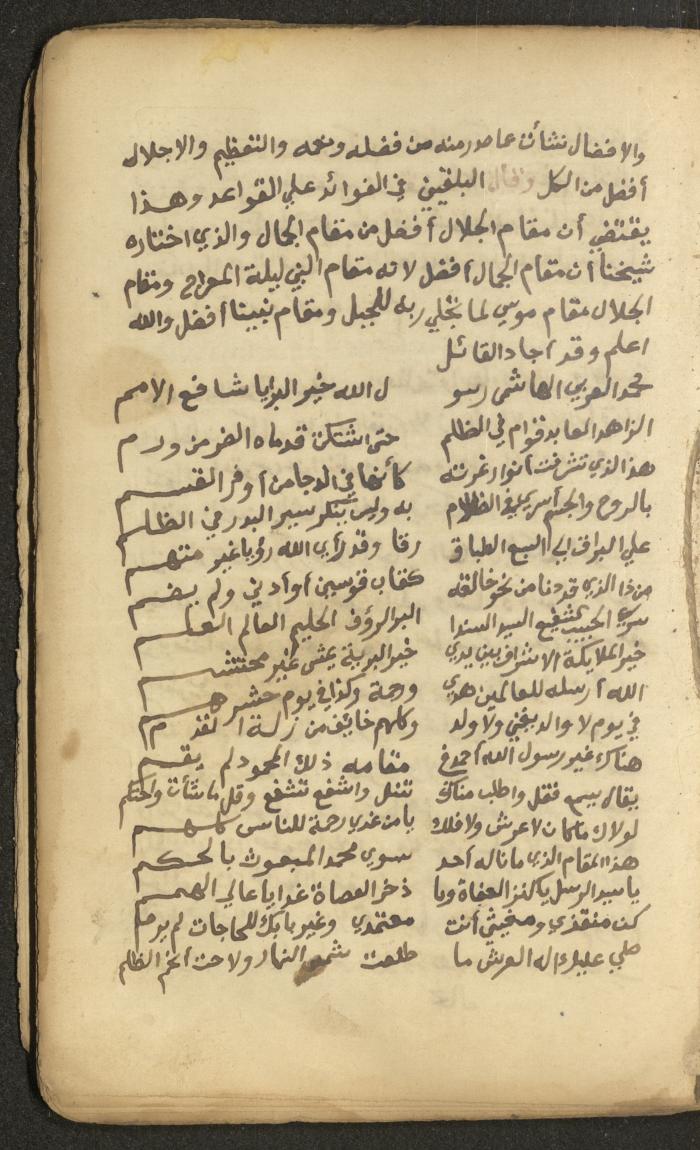 والافضال نشأت عما صدر منه من فضله ونعمه والتعظيم والاجلال
أفضل من الكل وقال البلقيني في الفوائد علي القواعد وهذا
يقتضي أن مقام الجلال أفضل من مقام الجمال والذي اختاره
شيخنا أن مقام الجمال أفضل لانه مقام النبي ليلة المعراج ومقام
الجلال مقام موسي لما تجلي ربه للجبل ومقام نبينا أفضل والله
اعلم وقد أجاد القائل
محمد العربي الهاشمي رسو ل الله خير البرايا شافع الامم
الزاهد العابد قوام في الظلم حتى اشتكت قدماه الضر من ورم
هذا الذي تشرفت أنوار غرته كأنها في الدجا من أوفر القسم
بالروح والجسم أسري في الظلام به وليس ينكر سير البدر في الظلم
علي البراق الي السبع الطباق رقا وقد رأي الله رؤيا غير متهم
من ذا الذي قد دنا من نحو خالقه كقاب قوسين أو أدني ولم يضم
سوي الحبيب شفيع السيد السندا البر الرؤف الحليم العالم العلم
خير الملايكة الاشراف بين يدي خير البرية يمشي غير محتشم
الله أرسله للعالمين هدي ورحمة وكذا في يوم حشرهم
في يوم لا والد يغني ولا ولد وكلهم خايف من زلة القدم
هناك غير رسول الله أحمد في مقامه ذلك المحمود لم يقم
يقال يسمع فقل واطلب مناك تنل واشفع تشفع وقل ما شأت واحتكم
لولاك ما كان لا عرش ولا فلك يا من غدي رحمة للناس كلهم
هذا المقام الذي ما ناله أحد سوي محمد المبعوث بالحكم
يا سيد الرسل يا كنز العفاة ويا ذخر العصاة غدا يا عالي الهمم
كن منقذي ومغيثي أنت معتمدي وغير بابك للحاجات لم يرم
صلي عليك اله العرش ما طلعت شمس النهار ولاحت أنجم الظلم